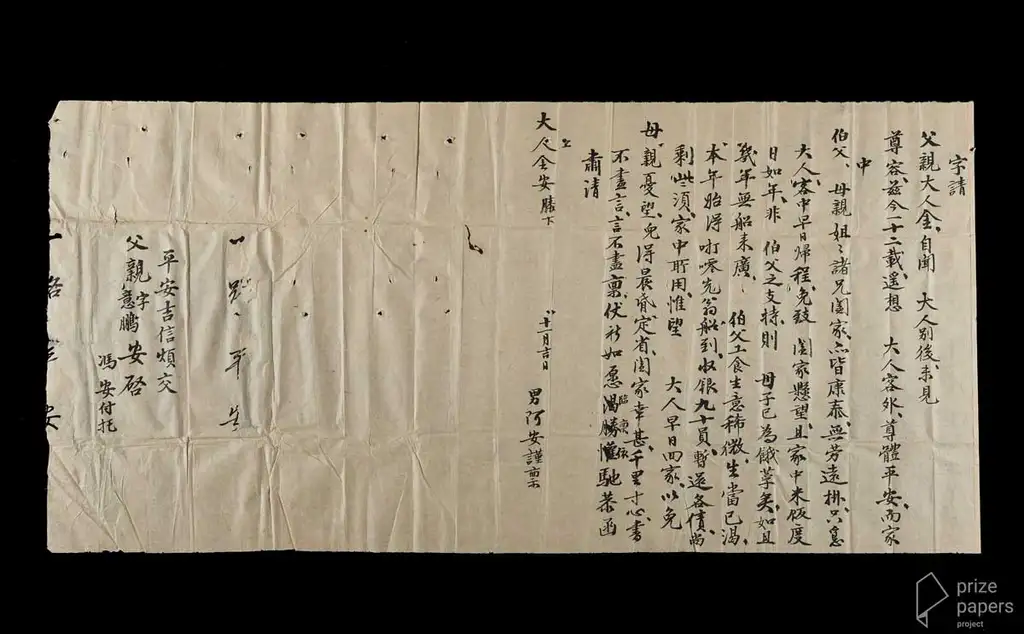 字請
父親大人金、自聞　大人別後、未見
尊容、玆今一十二載、遥想　大人客外、尊體平安、而家
中
伯父、母親姐々諸兄闔家亦皆康泰、無劳遠掛、只息
大人、客中早日歸程、免致　闔家懸望、且家中米飯度
日如年、非　伯父之支持、則　母子已為餓莩矣、如且
幾年無船来廣、　伯父工食生意稀微、生當已渴、
本年始得咑㖫先翁船到、收銀九十員、暫還各債、尚
剩些湏、家中所用、惟望　大人早日回家、以免
母親憂望、免得晨昏定省、闔家幸甚、千里寸心、書
不盡言、言不盡禀、伏祈如愿、臨稟依依 渴勝 馳恭函
肅請
上
大人金安膝下
十一月吉日　男阿安謹禀
一路平安
平安吉信煩交
父親字意鵬安啓
馮安付托
一路平安
prize
papers
project